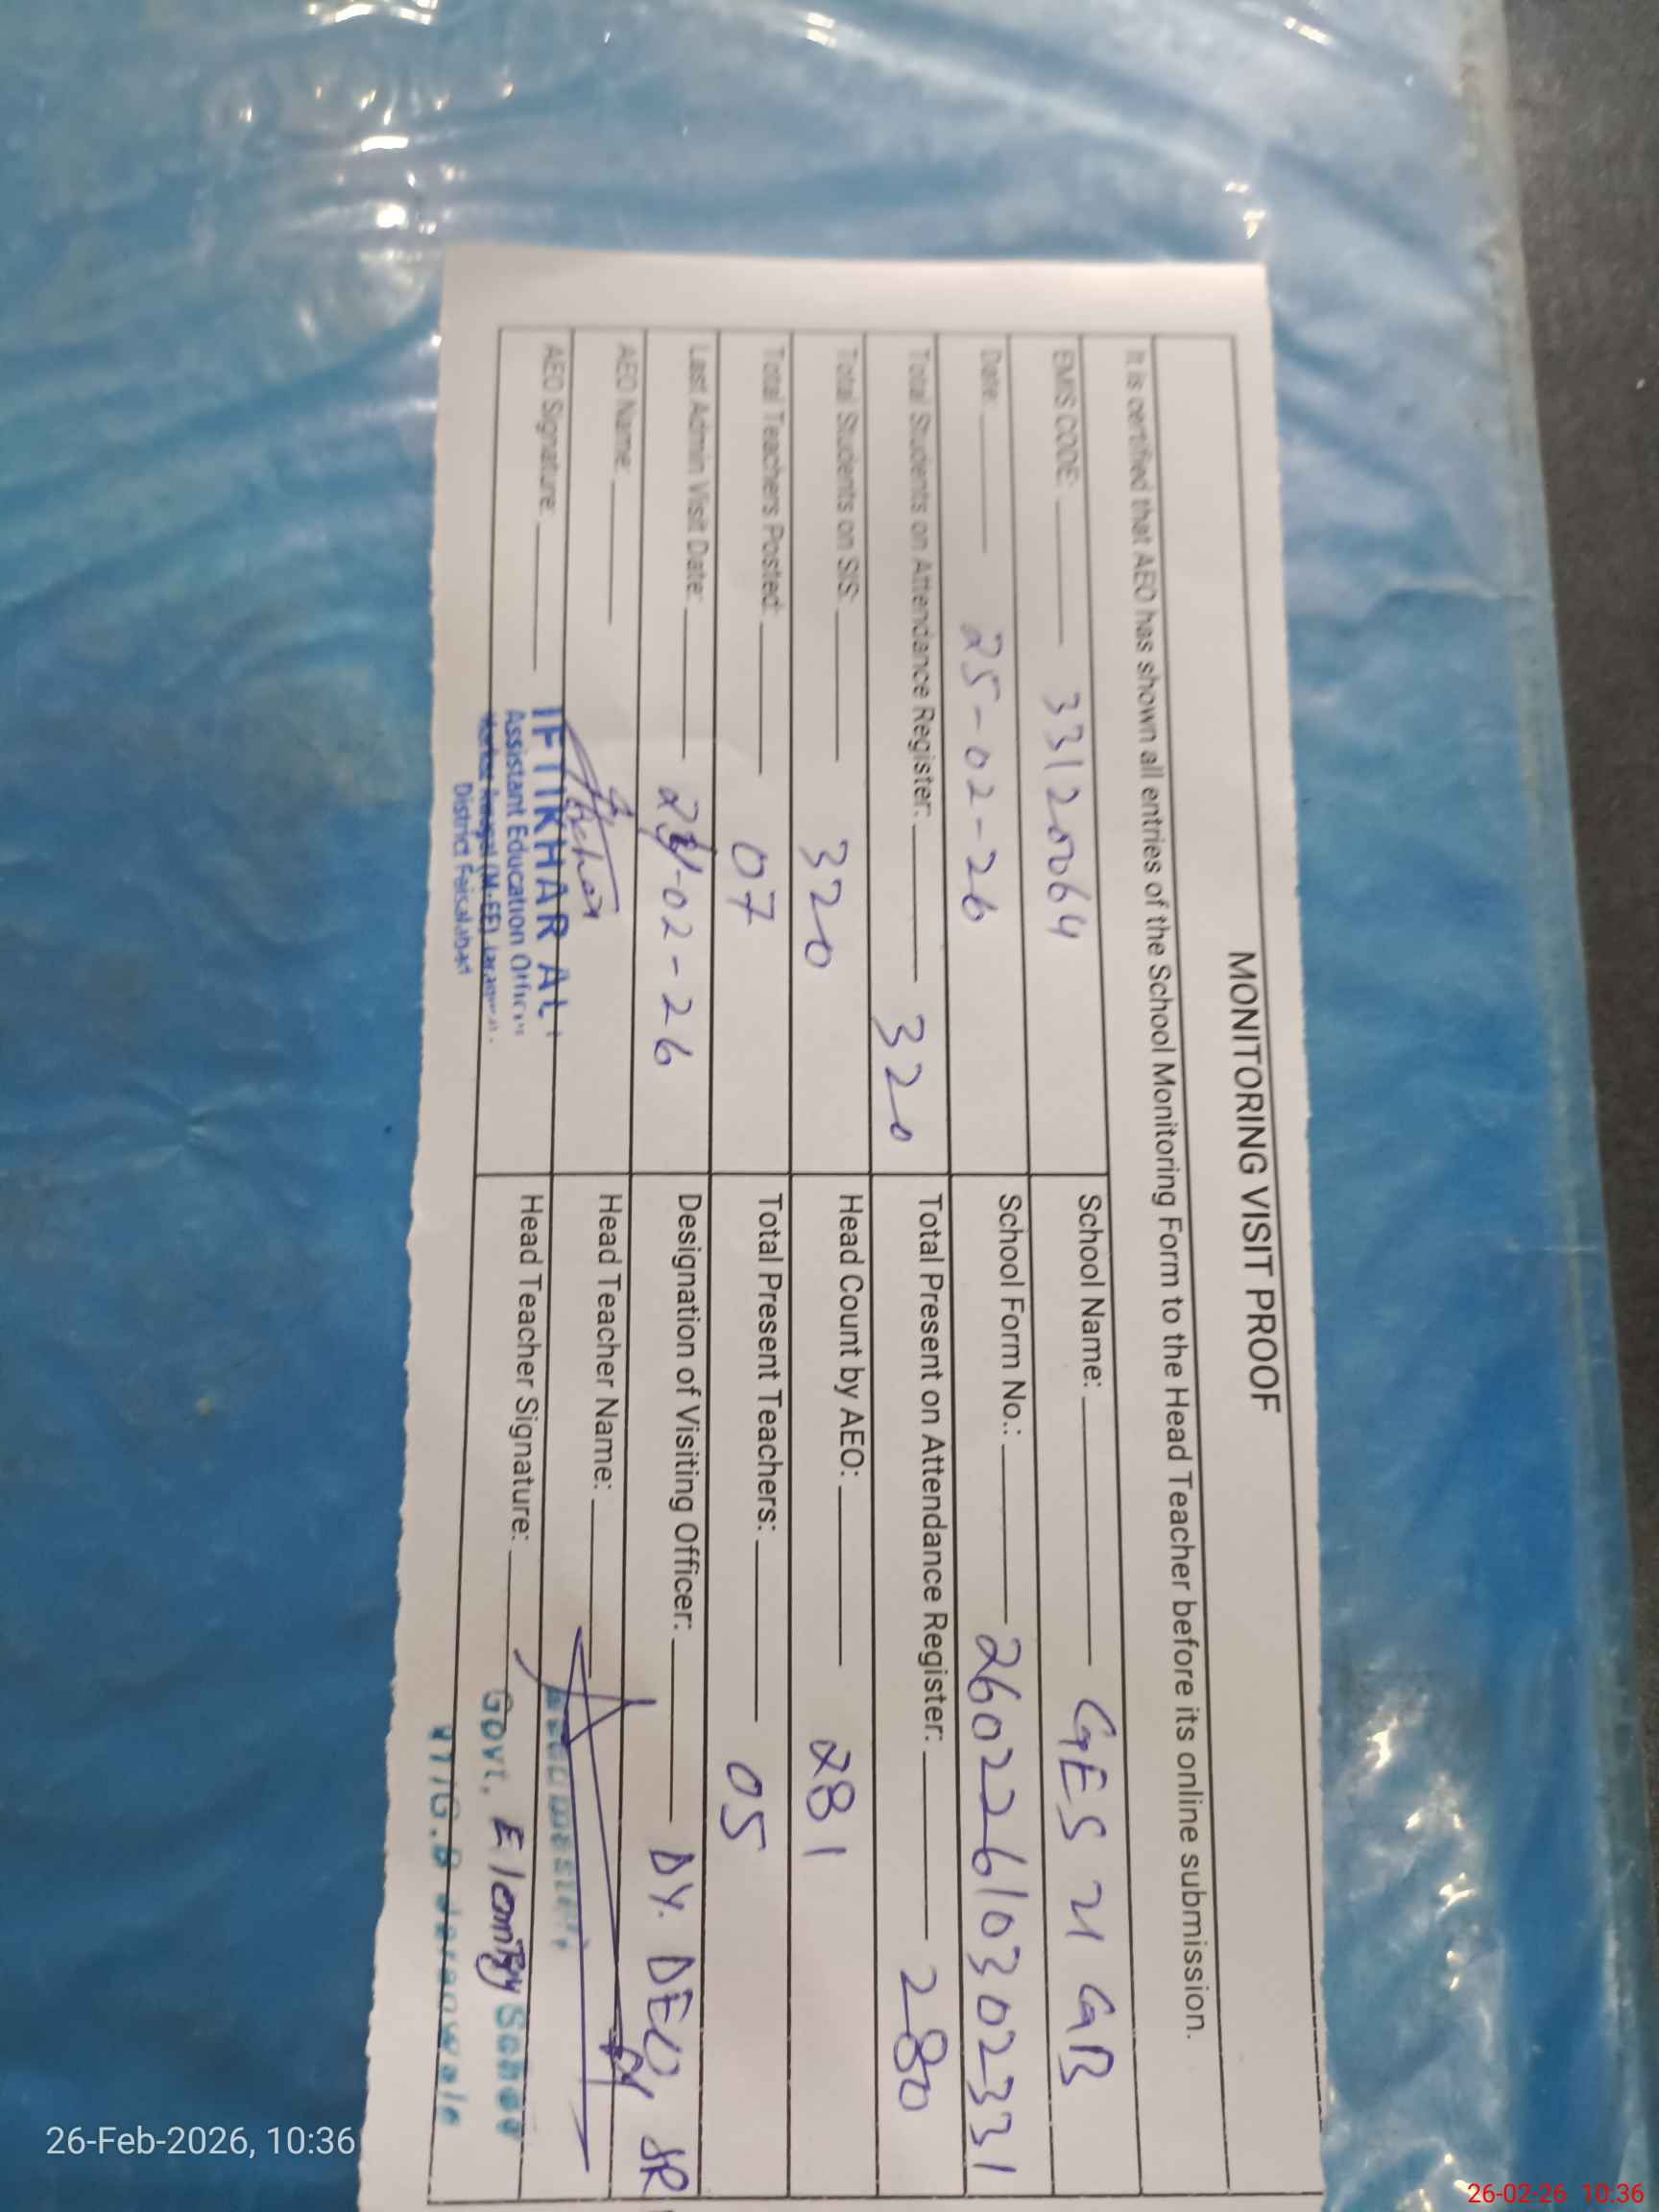 MONITORING VISIT PROOF
It is certified that AEO has shown all entries of the School Monitoring Form to the Head Teacher before its online submission.
EMIS CODE: 33120064 School Name: GES 21 GB
Date: 25-02-26 School Form No.: 2602261030302331
Total Students on Attendance Register: 320 Total Present on Attendance Register: 280
Total Students on SIS: 320 Head Count by AEO: 281
Total Teachers Posted: 07 Total Present Teachers: 05
Last Admin Visit Date: -02-26 Designation of Visiting Officer: DY. DEO, SR
AEO Name: Head Teacher Name:
AEO Signature: Head Teacher Signature:
IFTIKHAR ALI
Assistant Education Officer
District Faisalabad
Govt. Elemtry School
26-Feb-2026, 10:36
26-02-26 10:36